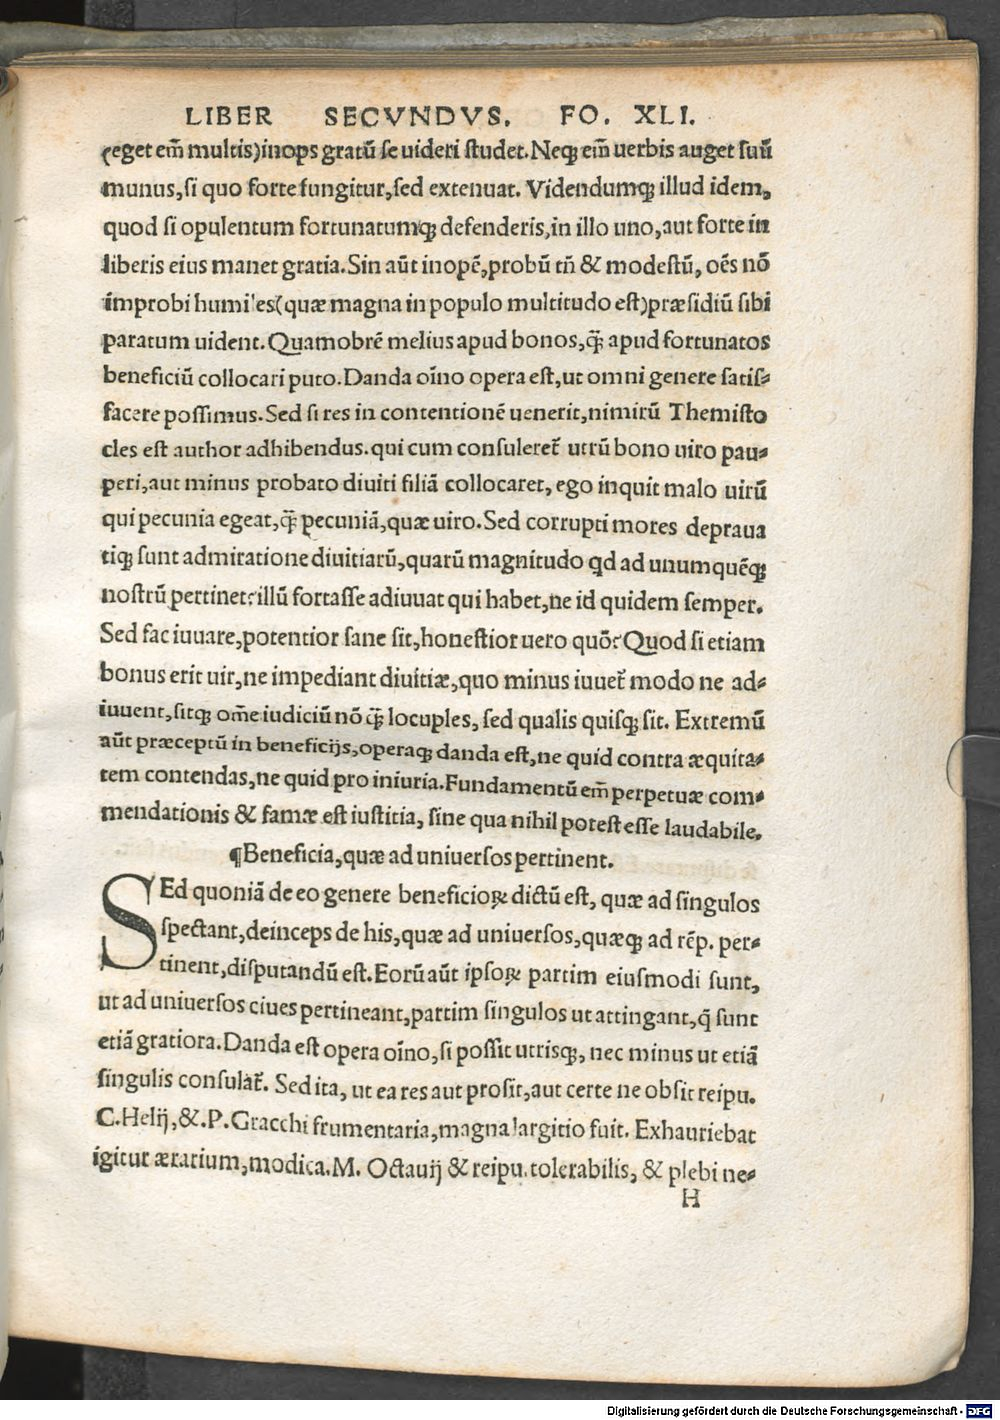 LIBER SECVNDVS. FO. XLI.
(eget em̃ multis)inops gratũ se uideri studet.Neqꝫ em̃ uerbis auget suũ
munus,si quo forte fungitur,sed extenuat. Videndumqꝫ illud idem,
quod si opulentum fortunatumqꝫ defenderis,in illo uno,aut forte in
liberis eius manet gratia.Sin aũt inopẽ,probũ tñ & modestũ, oẽs nõ
improbi humiles(quæ magna in populo multitudo est)præsidiũ sibi
paratum uident.Quamobrẽ melius apud bonos,q̃ꝫ apud fortunatos
beneficiũ collocari puto.Danda oĩno opera est,ut omni genere satis⸗
facere possimus.Sed si res in contentionẽ uenerit,nimirũ Themisto
cles est author adhibendus.qui cum consuleret̃ utrũ bono uiro pau⸗
peri,aut minus probato diuiti filiã collocaret, ego inquit malo uirũ
qui pecunia egeat,q̃ꝫ pecuniã,quæ uiro.Sed corrupti mores depraua
tiqꝫ sunt admiratione diuitiarũ,quarũ magnitudo qd ad unumquẽqꝫ
nostrũ pertinet?illũ fortasse adiuuat qui habet,ne id quidem semper.
Sed fac iuuare,potentior sane sit,honestior uero quõ?Quod si etiam
bonus erit uir,ne impediant diuitiæ,quo minus iuuet̃ modo ne ad⸗
iuuent,sitqꝫ om̃e iudiciũ nõ q̃ꝫ locuples, sed qualis quisqꝫ sit. Extremũ
aũt præceptũ in beneficijs,operaqꝫ danda est,ne quid contra æquita⸗
tem contendas,ne quid pro iniuria.Fundamentũ em̃ perpetuæ com⸗
mendationis & famæ est iustitia, sine qua nihil potest esse laudabile.
¶Beneficia,quæ ad uniuersos pertinent.
SEd quoniã de eo genere beneficioꝝ dictũ est, quæ ad singulos
spectant,deinceps de his,quæ ad uniuersos,quæqꝫ ad rẽp. per⸗
tinent,disputandũ est.Eorũ aũt ipsoꝝ partim eiusmodi sunt,
ut ad uniuersos ciues pertineant,partim singulos ut attingant,q̃ sunt
etiã gratiora.Danda est opera oĩno,si possit utrisqꝫ, nec minus ut etiã
singulis consulat̃. Sed ita, ut ea res aut prosit,aut certe ne obsit reipu.
C.Helij,&.P.Gracchi frumentaria,magna largitio fuit. Exhauriebat
igitur ærarium,modica.M. Octauij & reipu.tolerabilis, & plebi ne⸗
H
Digitalisierung gefördert durch die Deutsche Forschungsgemeinschaft - DFG